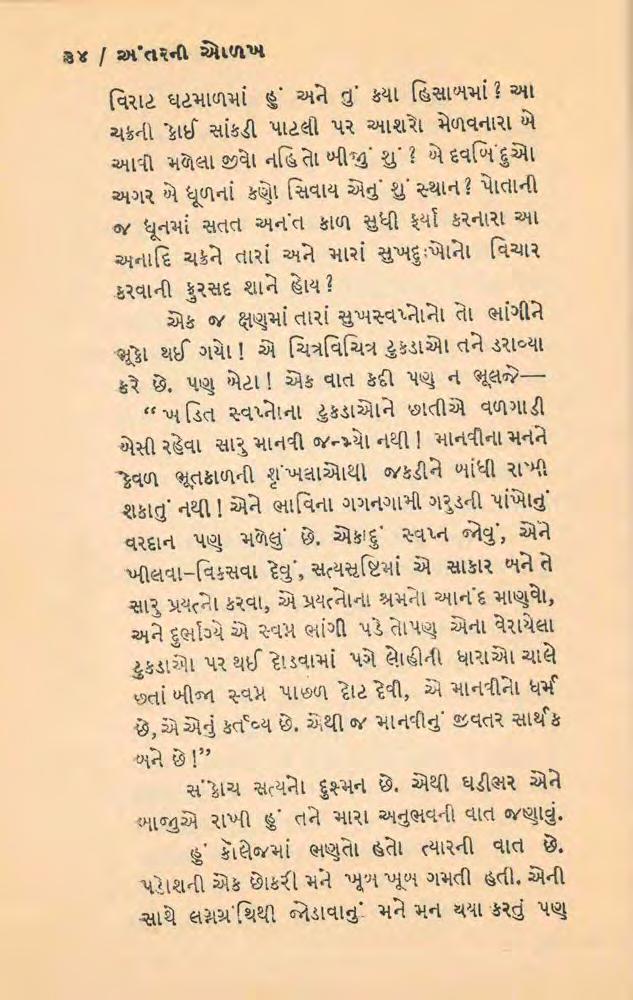 ૩૪ / અંતરની ઓળખ
વિરાટ ઘટમાળમાં હું અને તું કયા હિસાબમાં ? આ
ચક્રની કોઈ સાંકડી પાટલી પર આશરો મેળવનારા બે
આવી મળેલા જીવો નહિ તો બીજું શું ? બે દવબિંદુઓ
અગર બે ધૂળનાં કણો સિવાય એનું શું સ્થાન ? પોતાની
જ ધૂનમાં સતત અનંત કાળ સુધી ફર્યા કરનારા આ
અનાદિ ચક્રને તારાં અને મારાં સુખદુઃખોનો વિચાર
કરવાની ફુરસદ શાને હોય ?
એક જ ક્ષણમાં તારાં સુખસ્વપ્નોનો તો ભાંગીને
ભૂકો થઈ ગયો ! એ ચિત્રવિચિત્ર ટુકડાઓ તને ડરાવ્યા
કરે છે. પણ બેટા ! એક વાત કદી પણ ન ભૂલજે—
“ ખંડિત સ્વપ્નોના ટુકડાઓને છાતીએ વળગાડી
બેસી રહેવા સારુ માનવી જન્મ્યો નથી ! માનવીના મનને
કેવળ ભૂતકાળની શૃંખલાઓથી જકડીને બાંધી રાખી
શકાતું નથી ! એને ભાવિના ગગનગામી ગરુડની પાંખોનું
વરદાન પણ મળેલું છે. એકાદું સ્વપ્ન જોવું, એને
ખીલવા–વિકસવા દેવું, સત્યસૃષ્ટિમાં એ સાકાર બને તે
સારુ પ્રયત્નો કરવા, એ પ્રયત્નોના શ્રમનો આનંદ માણવો,
અને દુર્ભાગ્યે એ સ્વપ્ન ભાંગી પડે તોપણ એના વેરાયેલા
ટુકડાઓ પર થઈ દોડવામાં પગે લોહીની ધારાઓ ચાલે
છતાં બીજા સ્વપ્ન પાછળ દોટ દેવી, એ માનવીનો ધર્મ
છે, એ એનું કર્તવ્ય છે. એથી જ માનવીનું જીવતર સાર્થક
બને છે !”
સંકોચ સત્યનો દુશ્મન છે. એથી ઘડીભર એને
બાજુએ રાખી હું તને મારા અનુભવની વાત જણાવું.
હું કૉલેજમાં ભણતો હતો ત્યારની વાત છે.
પડોશની એક છોકરી મને ખૂબ ખૂબ ગમતી હતી. એની
સાથે લગ્નગ્રંથિથી જોડાવાનું મને મન થયા કરતું પણ